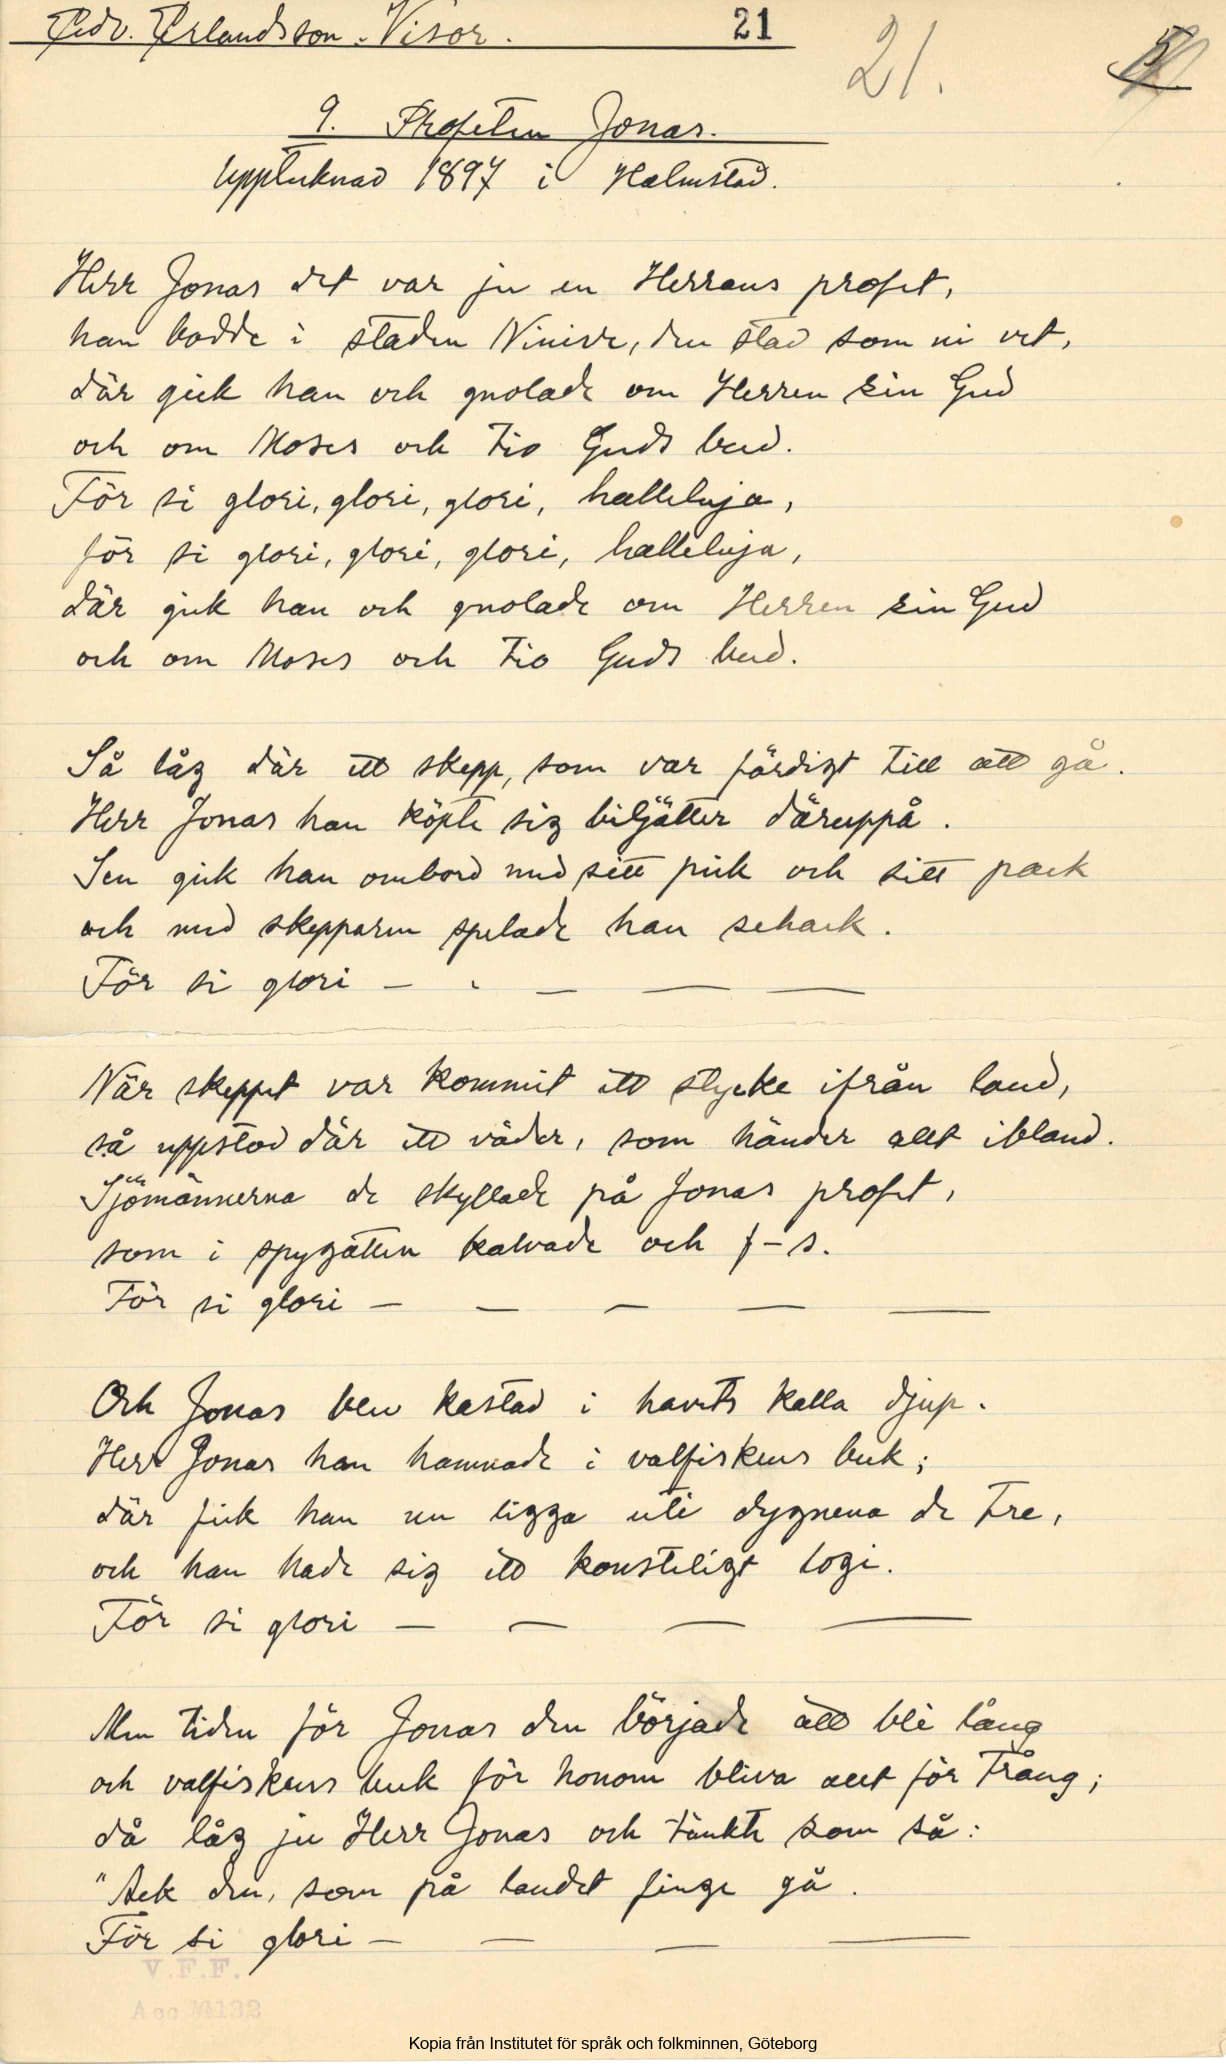 Edv. Erlandsson. Visor. 21 21.
9. Profeten Jonas.
Upptecknad 1897 i Halmstad.
Herr Jonas det var ju en Herrans profet,
han bodde i staden Ninive, den stad som ni vet,
där gick han och gnolade om Herren sin Gud
och om Moses och tio Guds bud.
För si glori, glori, glori, halleluja,
för si glori, glori, glori, halleluja,
där gick han och gnolade om Herren sin Gud
och om Moses och tio Guds bud.
Så låg där ett skepp, som var färdigt till att gå.
Herr Jonas han köpte sig biljätter däruppå.
Sen gick han ombord med sitt pick och sitt pack
och med skepparen spelade han schack.
För si glori – - – — —
När skeppet var kommit ett stycke ifrån land,
så uppstod där ett väder, som händer allt ibland.
Sjömännerna de skyllade på Jonas profet,
som i spygatten kalvade och f-s.
För si glori – – – — —
Och Jonas blev kastad i havets kalla djup.
Herr Jonas han hamnade i valfiskens buk;
där fick han nu ligga uti dygnena de tre,
och han hade sig ett konsteligt logi.
För si glori – – — —
Men tiden för Jonas den började att bli lång
och valfiskens buk för honom bliva allt för trång;
då låg ju Herr Jonas och tänkte som så:
"Ack den, som på landet finge gå.
För si glori – – — —
V.F.F.
Acc M132
Kopia från Institutet för språk och folkminnen, Göteborg